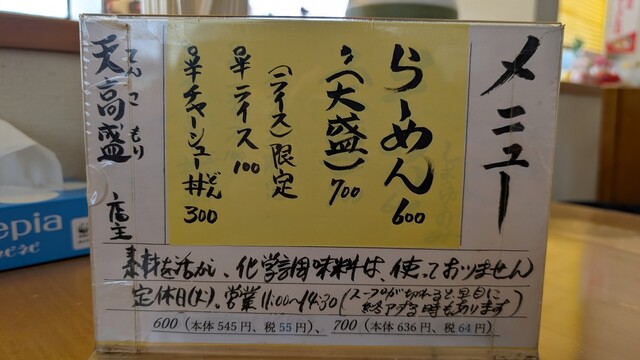 メニュー
らーめん 600
〃(大盛) 700
(ライス)限定
半ライス 100
半チャーシュー丼 300
どん
天高盛
てんこもり
店主
素材を活かし、化学調味料は、使っておりません
定休日(火)、営業11:00〜14:30(スープが切れると、早目に
終了する時もあります)
600(本体 545円、税 55円)、 700(本体 636円、税 64円)
epia
ネピア